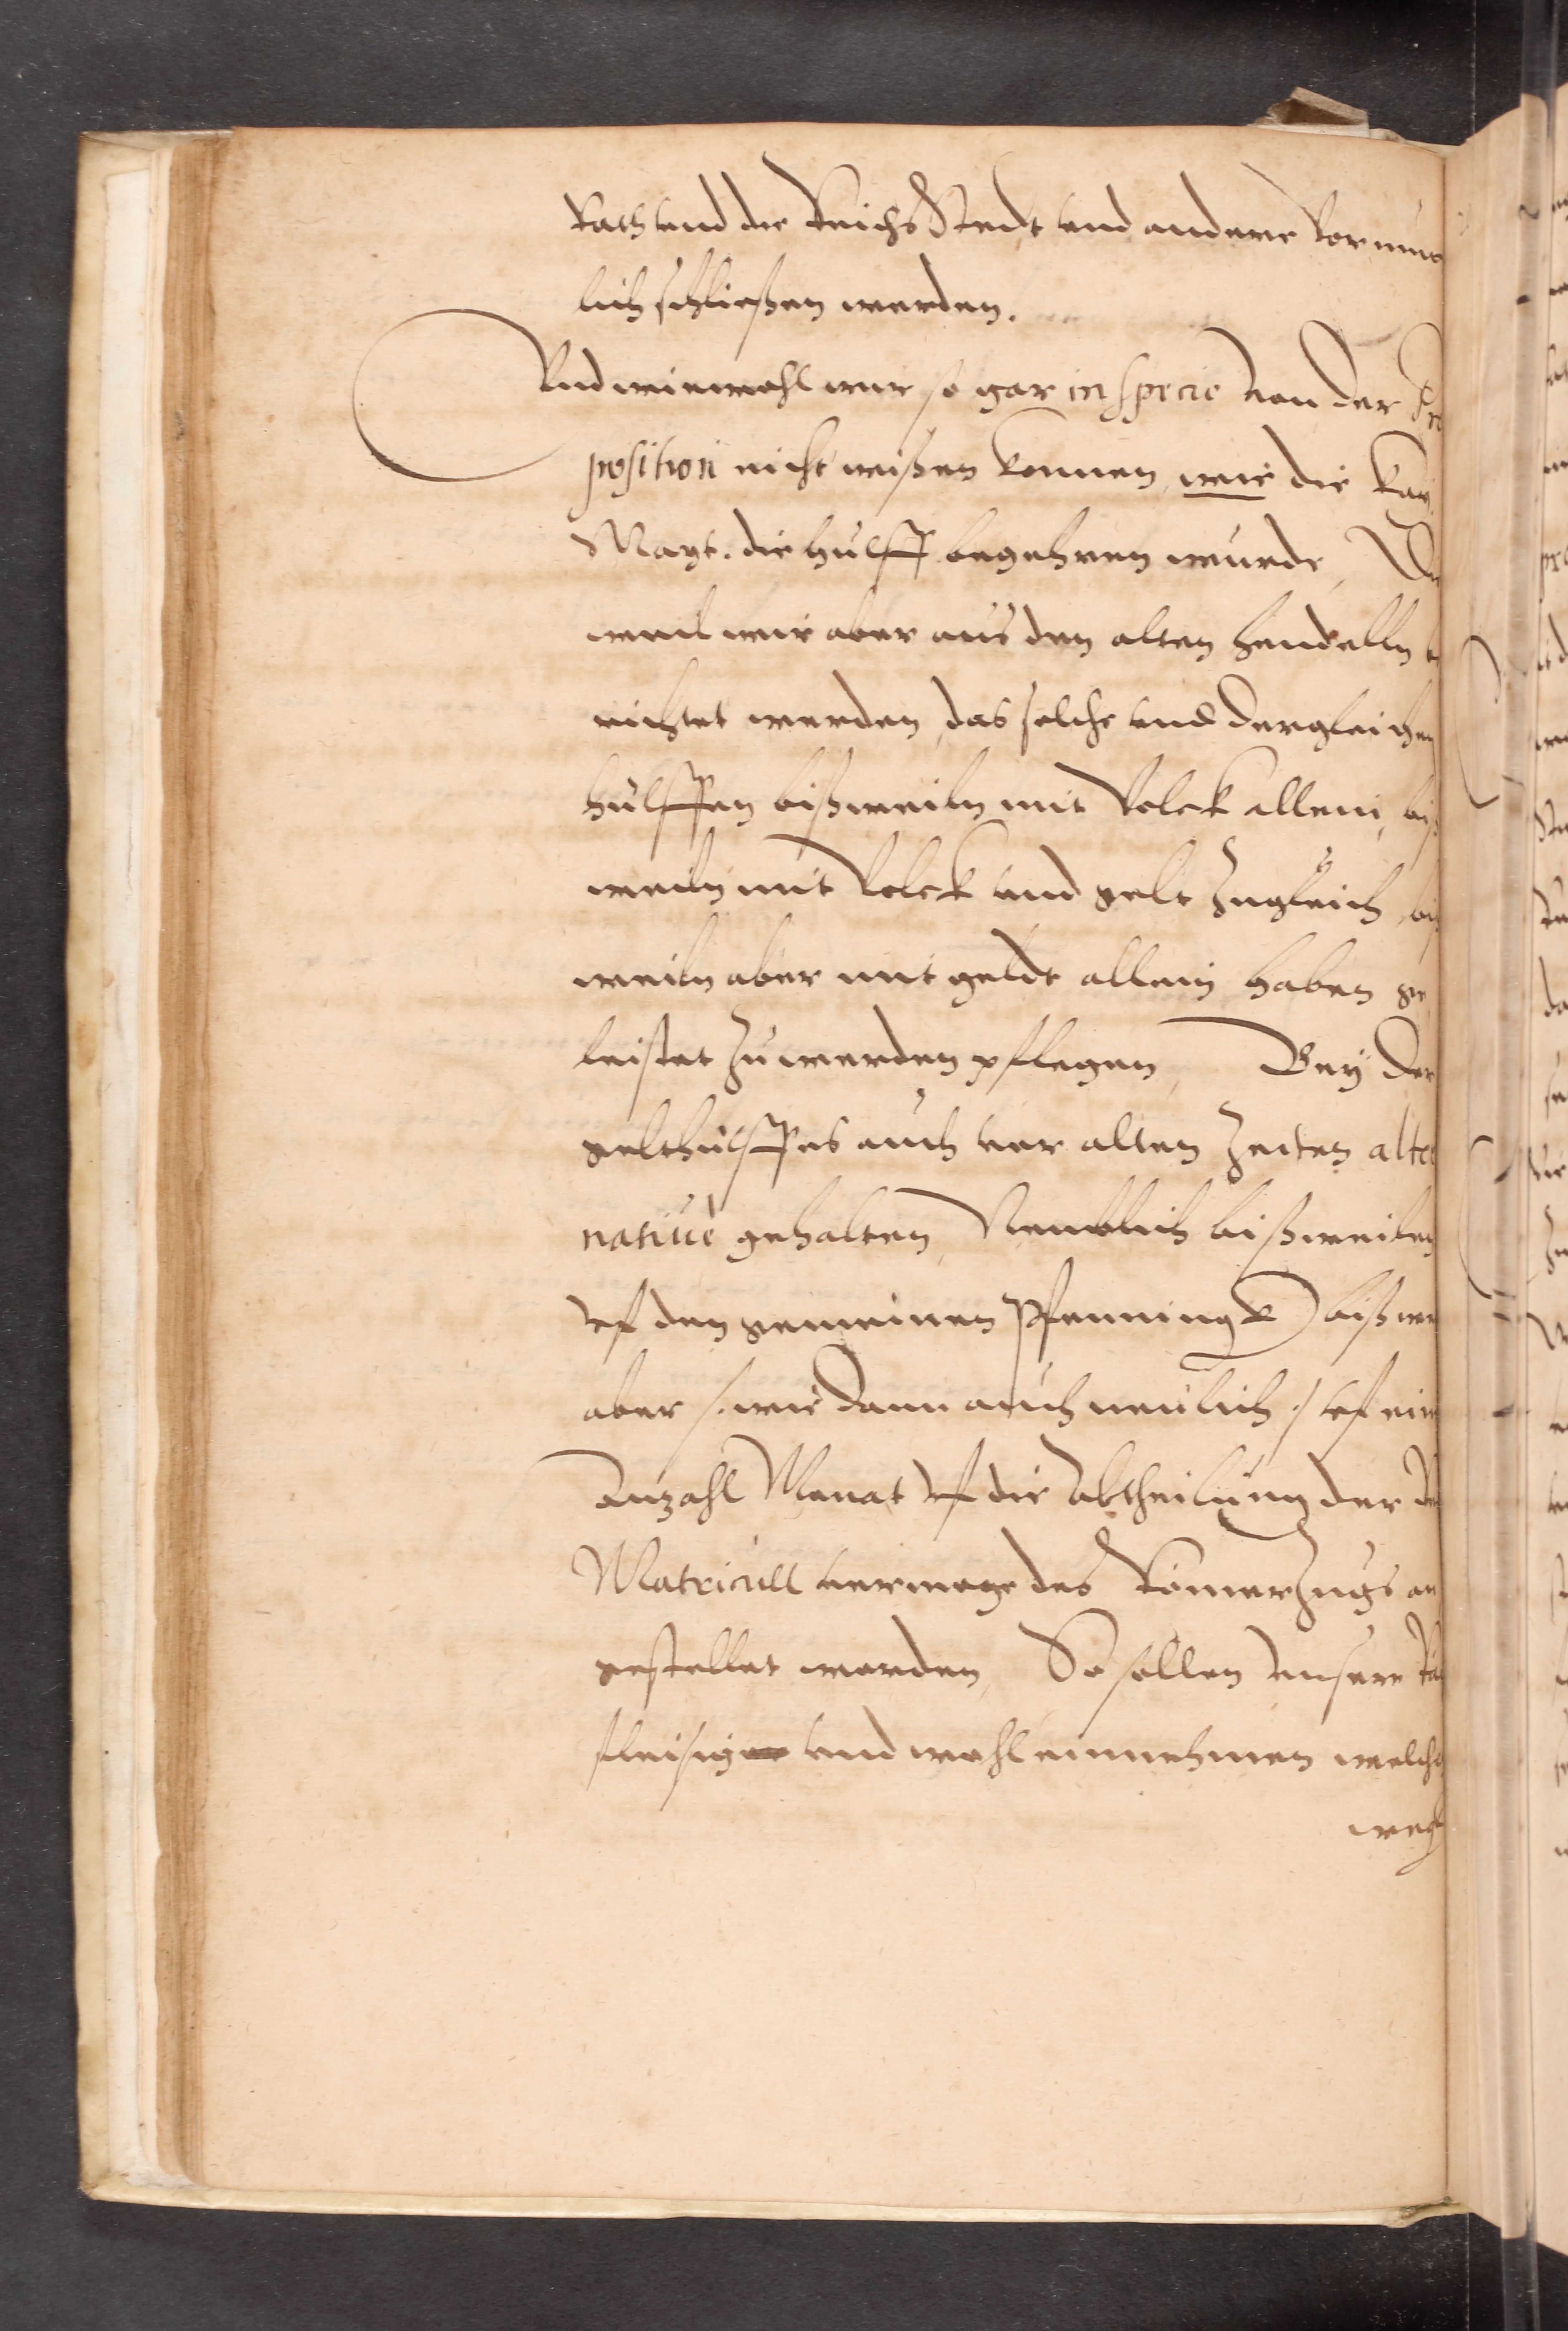 Rath vnd die ReichsStedt vnd andere Vornem
lich schließen werden.
Vnd wiewohl wir so gar in specie von der Pro
position nicht wißen konnen, wie die Kay.
Mayt. die hulff begehren wurde, Die
weil wir aber aus den alten hendelln be
richtet werden, das solche vnd dergleichen
hülffen bißweiln mit Volck allein, biß
weiln mit Volck vnd gelt zugleich, biß
weiln aber mit geldt allein haben ge
leistet zu werden pflegen, Bey der
gelthülff es auch vor alten Zeiten alter
natiue gehalten, Nemblich bißweilen
vf den gemeinen Pfenningk bißwei
aber /: wie dann auch neulich :/ vf ein
Anzahl Monat vf die Abtheilung der Re
Matricull vermoge des Römerzugs an
gestellet worden, So sollen vnsere Rä
fleisig vnd wohl einnehmen welche
weg